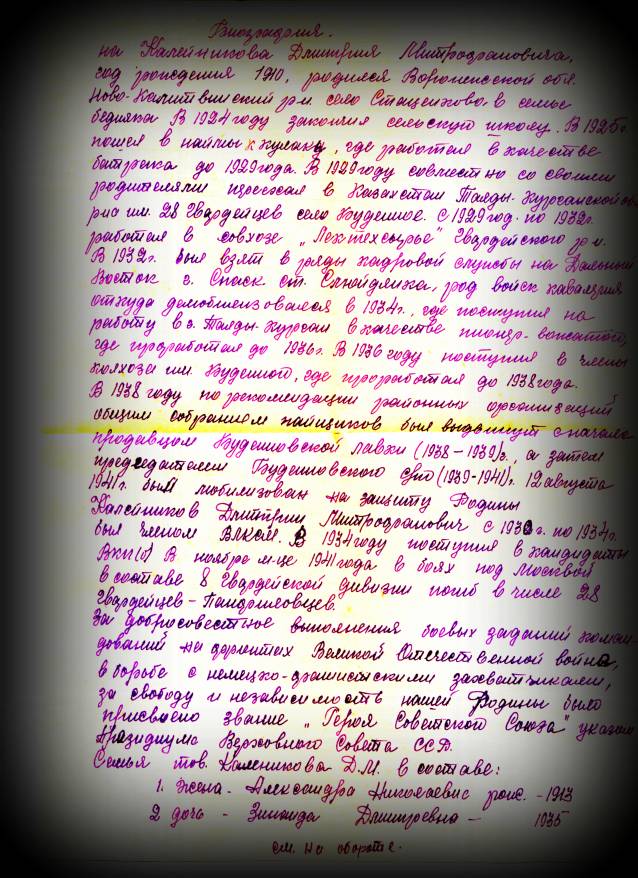 Биография.
на Калейникова Дмитрия Митрофановича,
год рождения 1910, родился Воронежской обл.
Ново-Калитвинский р-н. село Стаценково в семье
бедняка В 1924 году закончил сельскую школу. В 1925г.
пошел в наймы к кулаку, где работал в качестве
батрака до 1929 года. В 1929 году совместно со своими
родителями переехал в Казахстан Талды-Курганской об
р-на им. 28 Гвардейцев село Буденное. С 1929 год. по 1932г.
работал в совхозе „Лектехсырье" Гвардейского р-н.
В 1932г. был взят в ряды кадровой службы на Дальный
Восток г. Спаск ст. род войск кавалерия
откуда демобилизовался в 1934г., где поступил на
работу в г. Талды-Курган в качестве пионер-вожатого,
где проработал до 1936г. В 1936 году поступил в члены
колхоза им. Буденного, где проработал до 1938 года.
В 1938 году по рекомендации районных организаций
общим собранием пайщиков был выдвинут сначала
продавцом Буденовской лавки (1938-1939)г., а затем
председателем Буденовского сpпо (1939-1941)г. 12 августа
1941г. был мобилизован на защиту Родины
Калейников Дмитрий Митрофанович с 1930г. по 1934г.
был членом ВЛКСМ. В 1934 году поступил в кандидаты
ВКП(б) В ноябре м-це 1941 года в боях под Москвой
в составе 8 Гвардейской дивизии погиб в числе 28
Гвардейцев-Панфиловцев.
За добросовестное выполнения боевых заданий коман
дований на фронтах Великой Отечественной война,
в борьбе с немецко-фашистскими захватчиками,
за свободу и независимость нашей Родины было
присвоено звание „Героя Советского Союза" указом
Президиума Верховного Совета ССР.
Семья тов. Каленикова Д.М. в составе:
1. Жена - Александра Нигоеевис рожд. - 1913
2 дочь - Зинаида Дмитревна - 1935
см. на обороте.